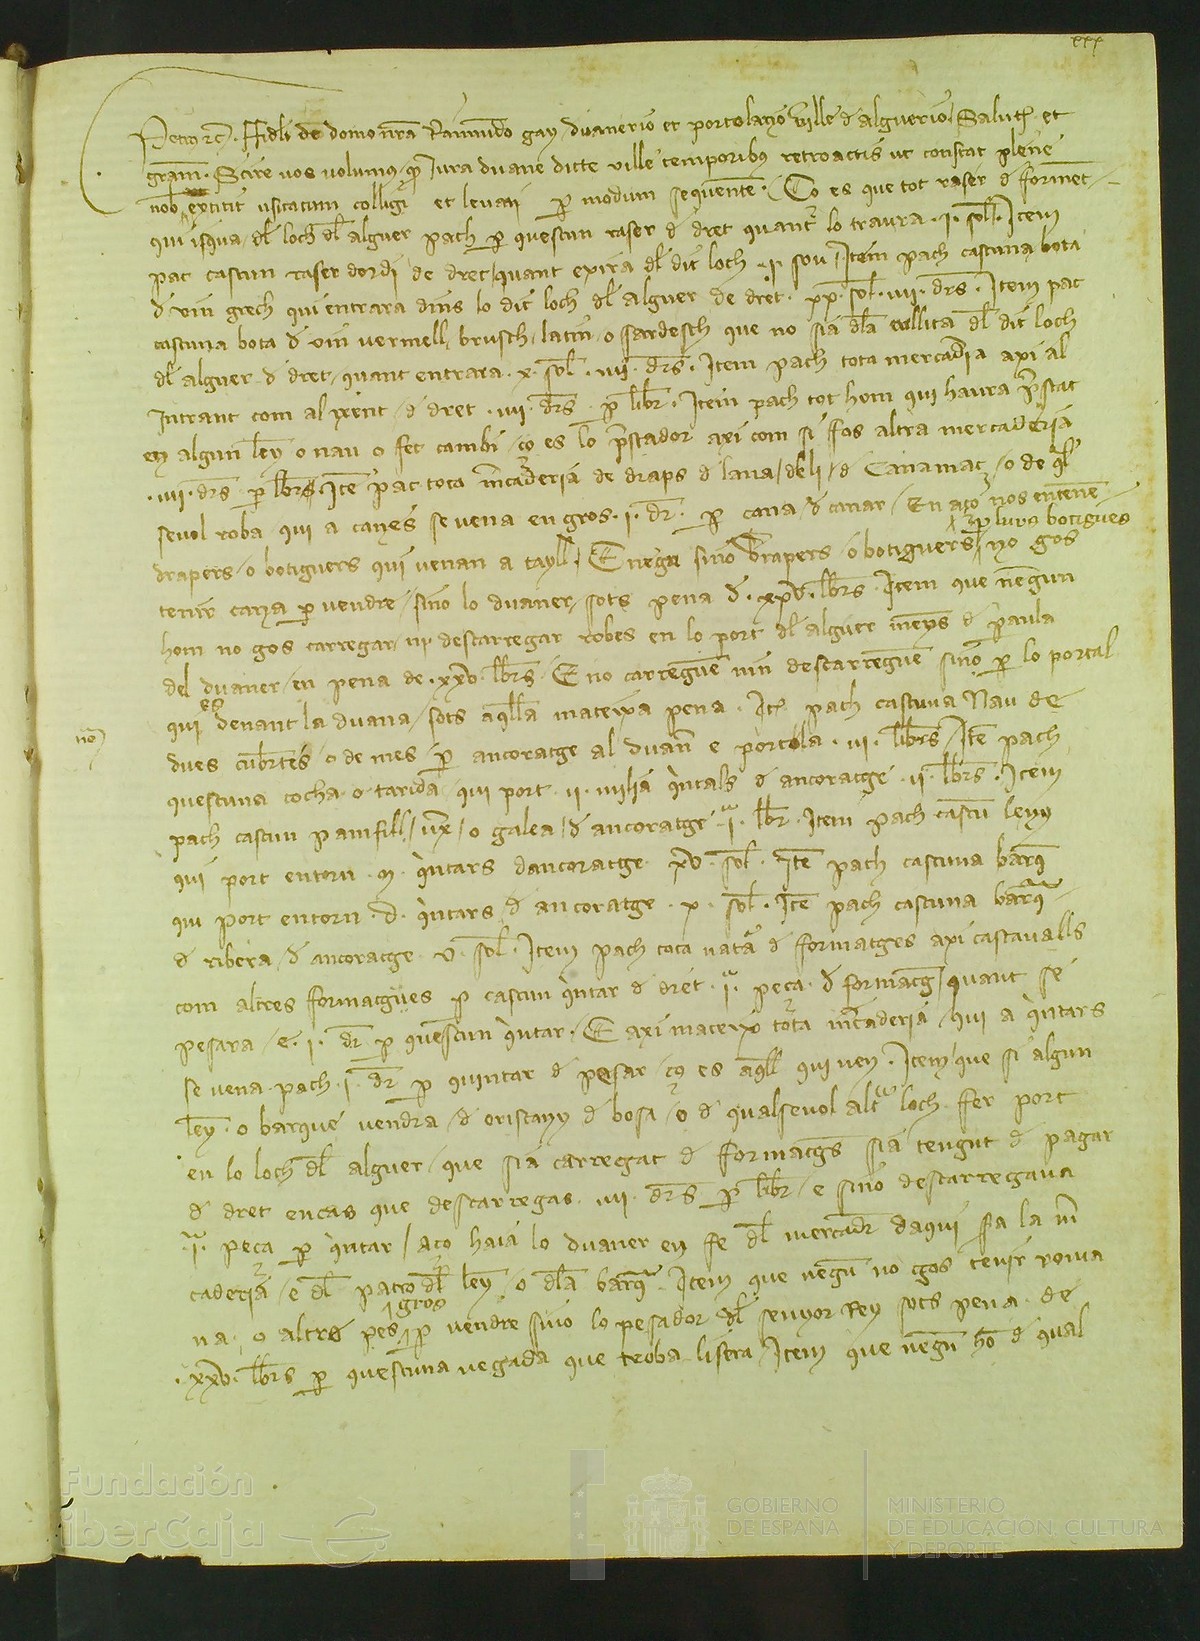 xxx
Petrus etc. Fideli de domo nostra Raimundo gay duanerio et portolano ville d alguerio Salutem et
gratiam. Scire vos volumus quod Iura duane dicte ville temporibus retroactis ut constat plene
nobis extitit usitatum colligi et levari per modum sequentem. Ço es que tot raser d forment
qui isqua del loch del alguer pach per quescun raser d dret quant lo traura .I. sol. Item
pac cascun raser dordi de dret quant exira del dit loch .I. sou. Item pach cascuna bota
d vin grech qui entrara dins lo dit loch del alguer de dret. xx. sol. iiii. drs. Item pac
cascuna bota d vin vermell, brusch, latin, o sardesch que no sia dla cullita del dit loch
del alguer d dret quant entrara. x. sol. iiii. drs. Item pach tota mercaderia axi al
Intrant com al xent d dret .iiii. drs. per libr. Item pach tot hom qui haura prestat
en algun leny o nau o fet cambi ço es lo prestador axi com si fos altra mercaderia
.iiii. drs. per lbr. Item pac tota mercaderia de draps d lana, de li, d Canamaç, o de qual
sevol roba qui a canes se vena en gros. i. dr. per cana d canar. En aço nos entenen
drapers o botiguers qui venan a tayll. E negu sino drapers o botiguers per lurs botigues no gos
tenir cana per vendre, sino lo duaner, sots pena d .xxv. lbrs. Item que negun
hom no gos carregar ni descarregar robes en lo port del alguer menys d paraula
del duaner en pena de .xxv. lbrs. E no carreguen nin descarreguen sino per lo portal
qui es denant la duana, sots aquella mateixa pena. Item pach cascuna Nau de
dues cubertes o de mes per ancoratge al duaner e portola .iii. libres. Item pach
quescuna cocha o tarida qui port .ii. milia quintals d ancoratge .ii. lbrs. Item
pach cascun pamfill, uxer, o galea d ancoratge .i. lbr. Item pach cascun leny
qui port entorn .m. quintars dancoratge xv. sol. Item pach cascuna barqua
qui port entorn .d. quintars d ancoratge .x. sol. Item pach cascuna barqua
d ribera d ancoratge v. sol. Item pach tota natura d formatges axi cascavalls
com altres formatgues per cascun quintar d dret .i. peça d formatge quant se
pesara e .i. dr. per quescun quintar. E axi mateix tota mercaderia qui a quintars
se vena pach .i. dr. per quintar d pesar ço es aquell qui ven. Item que si algun
leny o barque vendra d oristany d bosa o d qualsevol altre loch fer port
en lo loch del alguer que sia carregat d formatges sia tengut d pagar
d dret en cas que descarregas. iiii. drs. per libr. e sino descarregava
.i. peça per quintar aço haia lo duaner en fe del mercader daqui sra la mer
caderia e del patro del leny o dla barqua. Item que negun no gos tenir roma
na o altre pes gros per vendre sino lo pesador del senyor Rey sots pena de
.xxv. lbrs. per quescuna vegada que troba li sera. Item que negun hom d qual
Fundación
iberCaja
GOBIERNO
DE ESPAÑA
MINISTERIO
DE EDUCACIÓN, CULTURA
Y DEPORTE